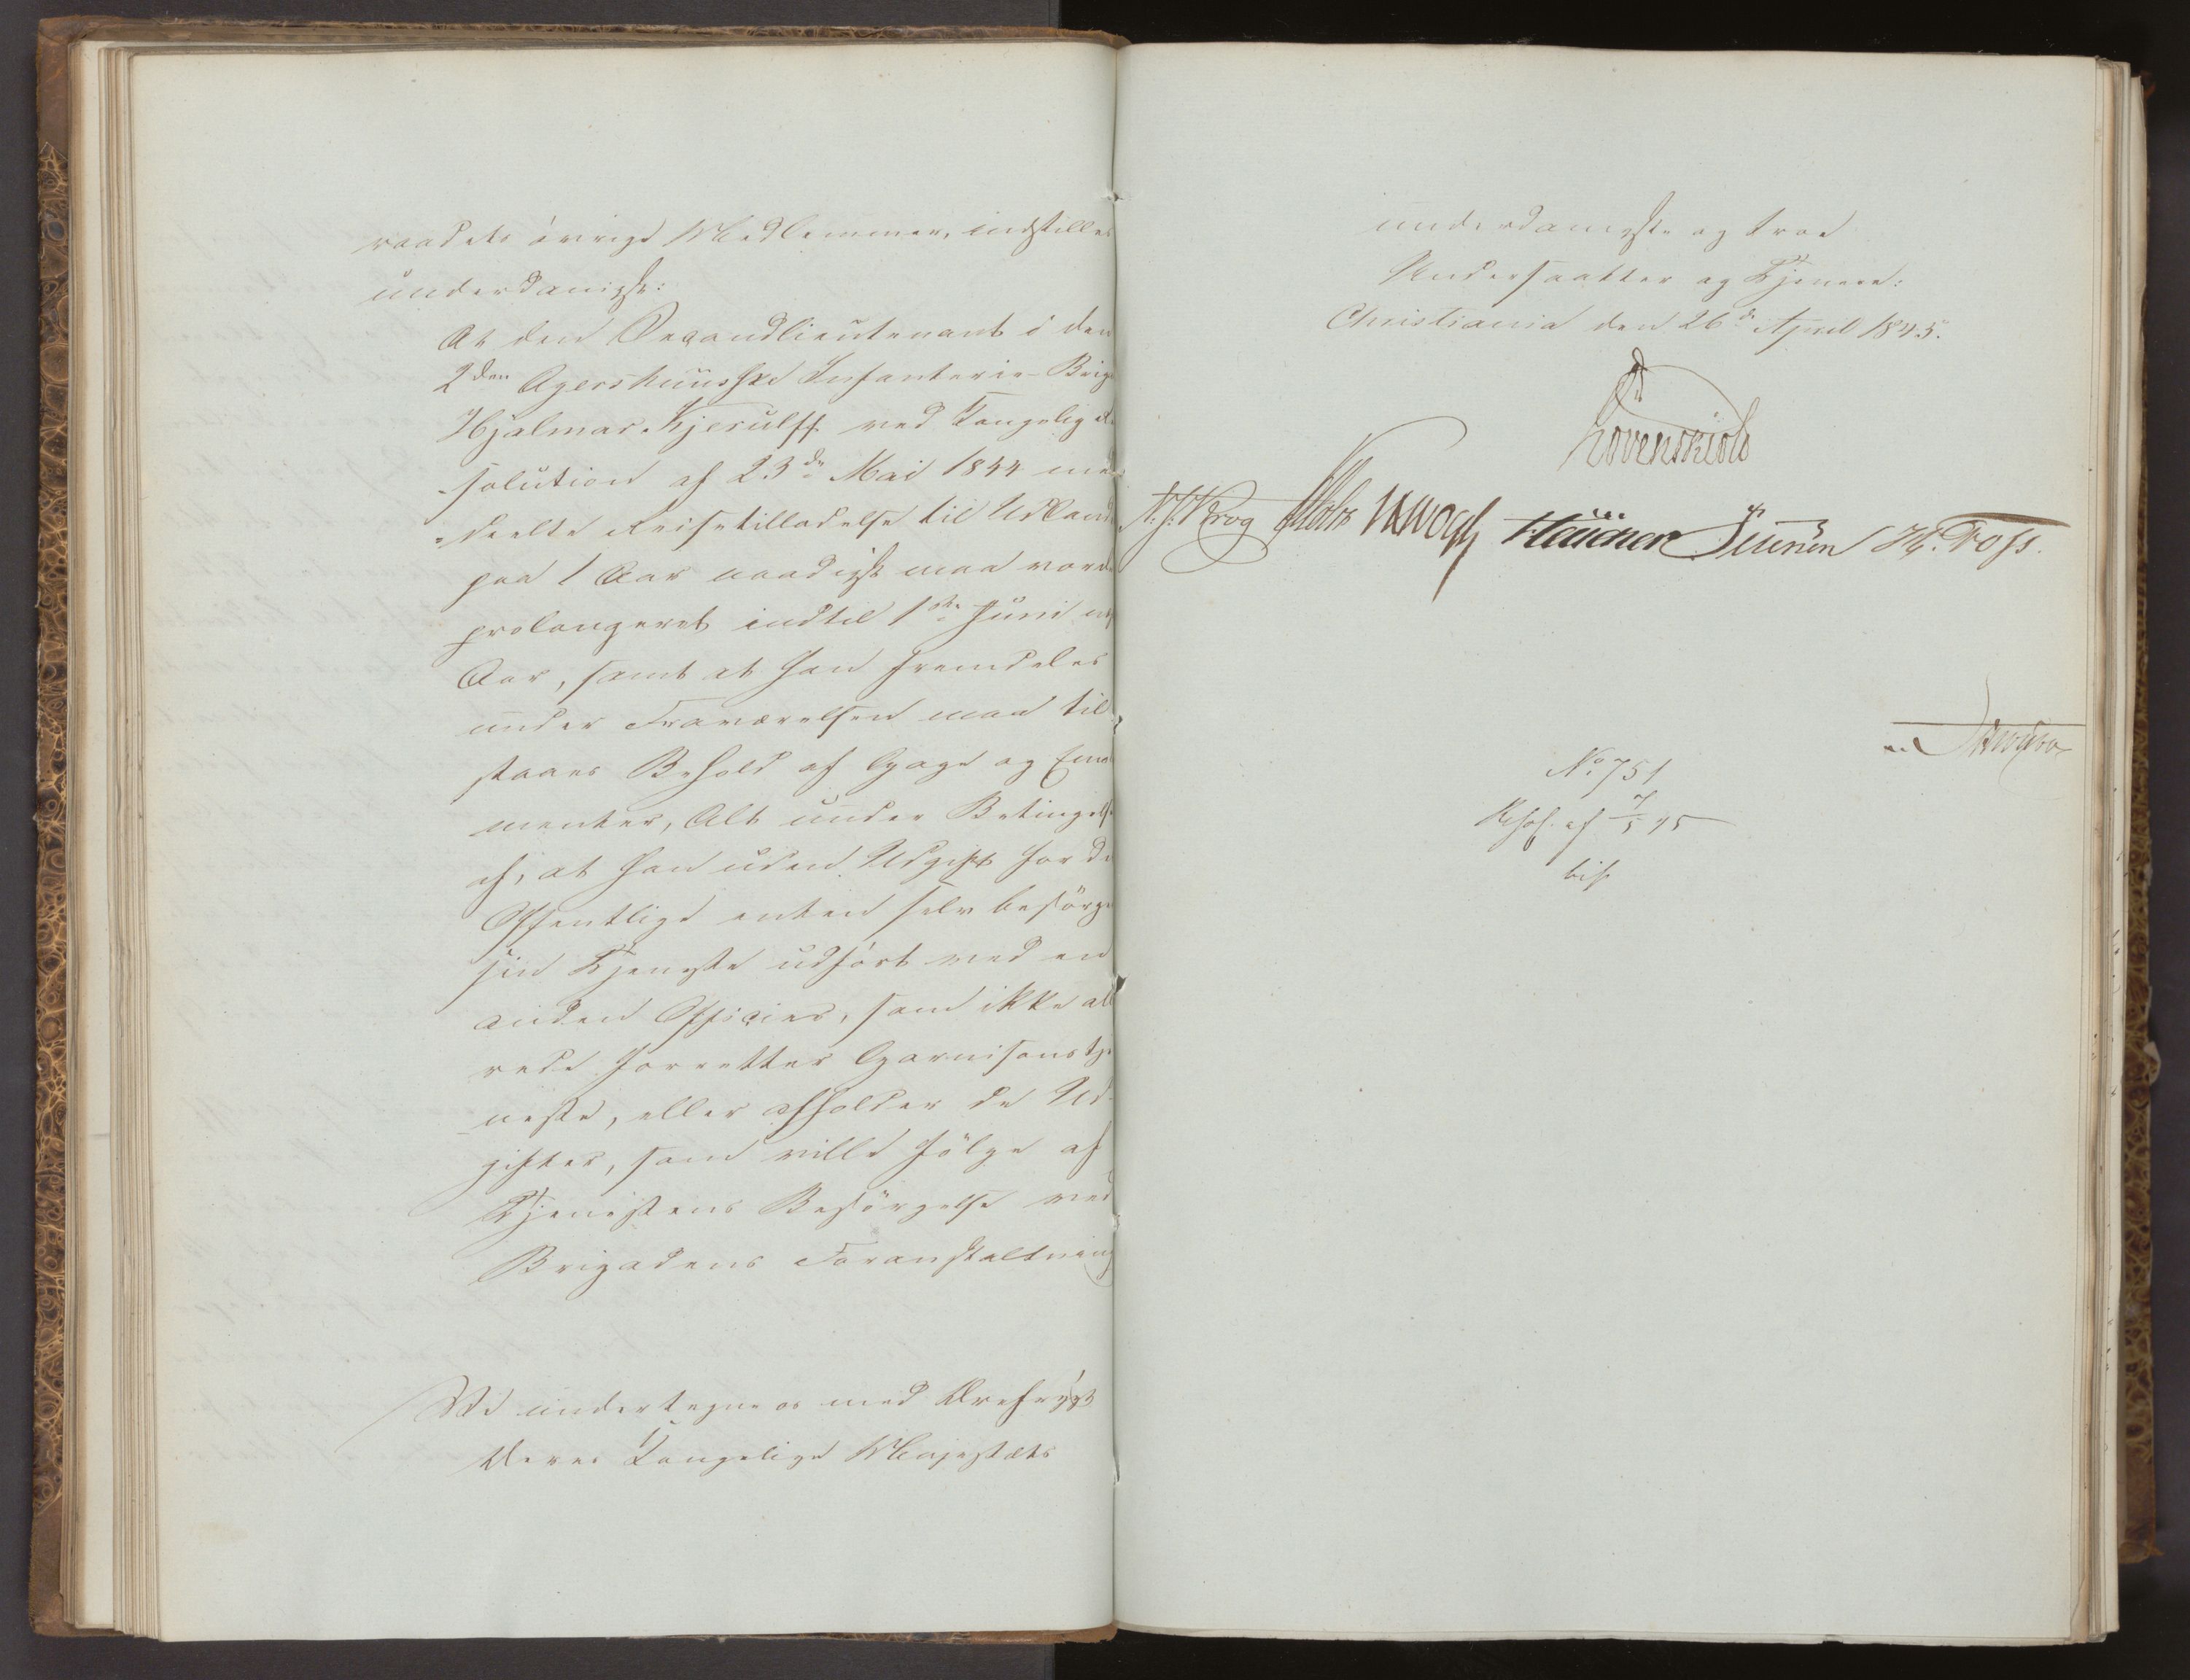 raadets øvrige Medlemmer, indstilles
underdanigst:
At den Secondlieutenant i den
2den Agershuusske Infanterie-Brig
Hjalmar Kjerulff ved Kongelig Re
-solution af 23de Mai 1844 med
-deelte Reisetilladelse til Udland
paa 1 Aar naadigst maa vorde
prolongeret indtil 1ste Juni
Aar, samt at han fremdeles
under Fraværelsen maa til
staaes Behold af Gage og Emo
menter, Alt under Betingelse
af, at han uden Udgift for de
Offentlige enten selv besørge
sin Tjeneste udført ved en
anden Officier, som ikke al
rede forretter Garnisonstje
neste, eller afholder de Ud-
gifter, som ville følge af
Tjenestens Besørgelse ved
Brigadens Foranstaltning
Vi undertegne os med Ærefrygt
Deres Kongelige Majestæts
underdanigste og troe
Undersaatter og Tjenere:
Christiania den 26de April 1845.
Løvenskiold
N. J. Krog JHVogt Hauener H. Foss.
No. 751
Resol. af 7/5 45
bif